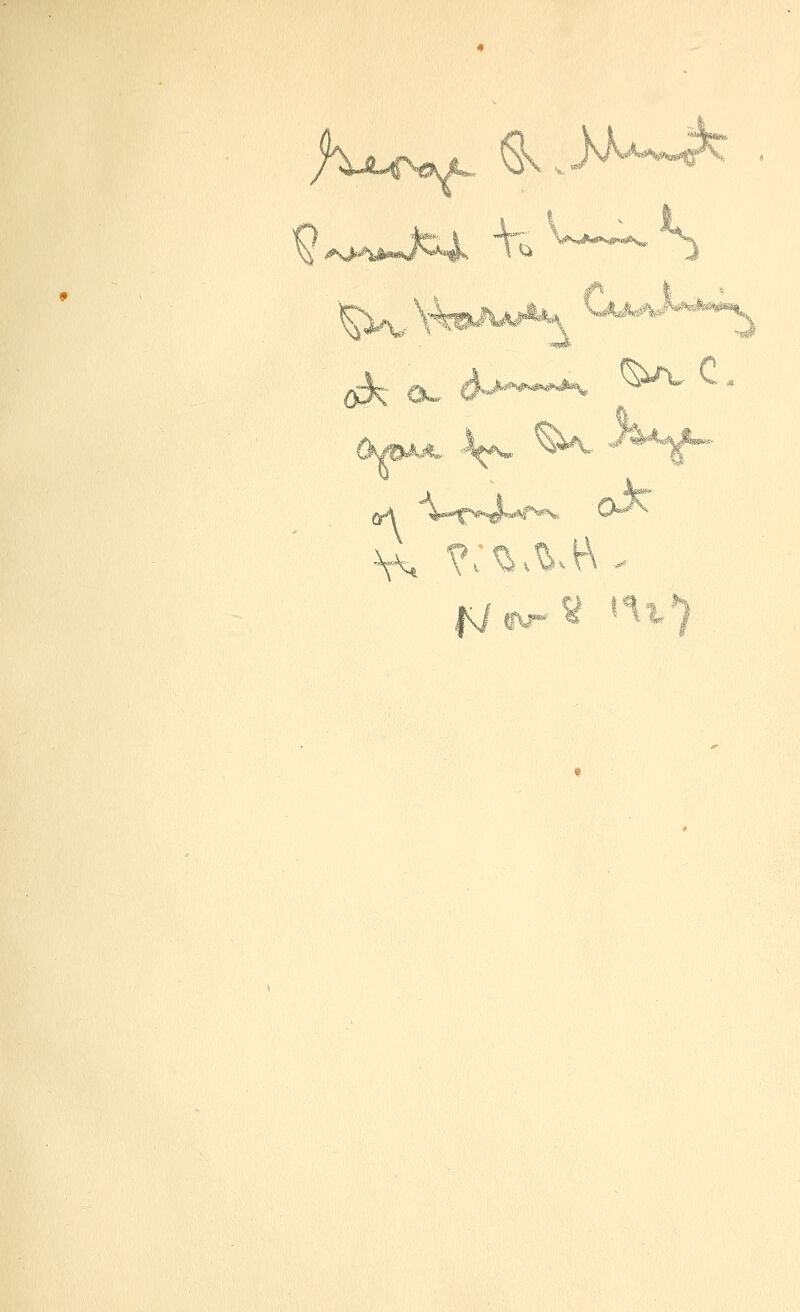 George R. Minot.
Presented to him by
Dr Harvey Cushing
at a dinner Dr C.
gave for Dr
of London at
the P.B.B.H.
Nov 8 1927